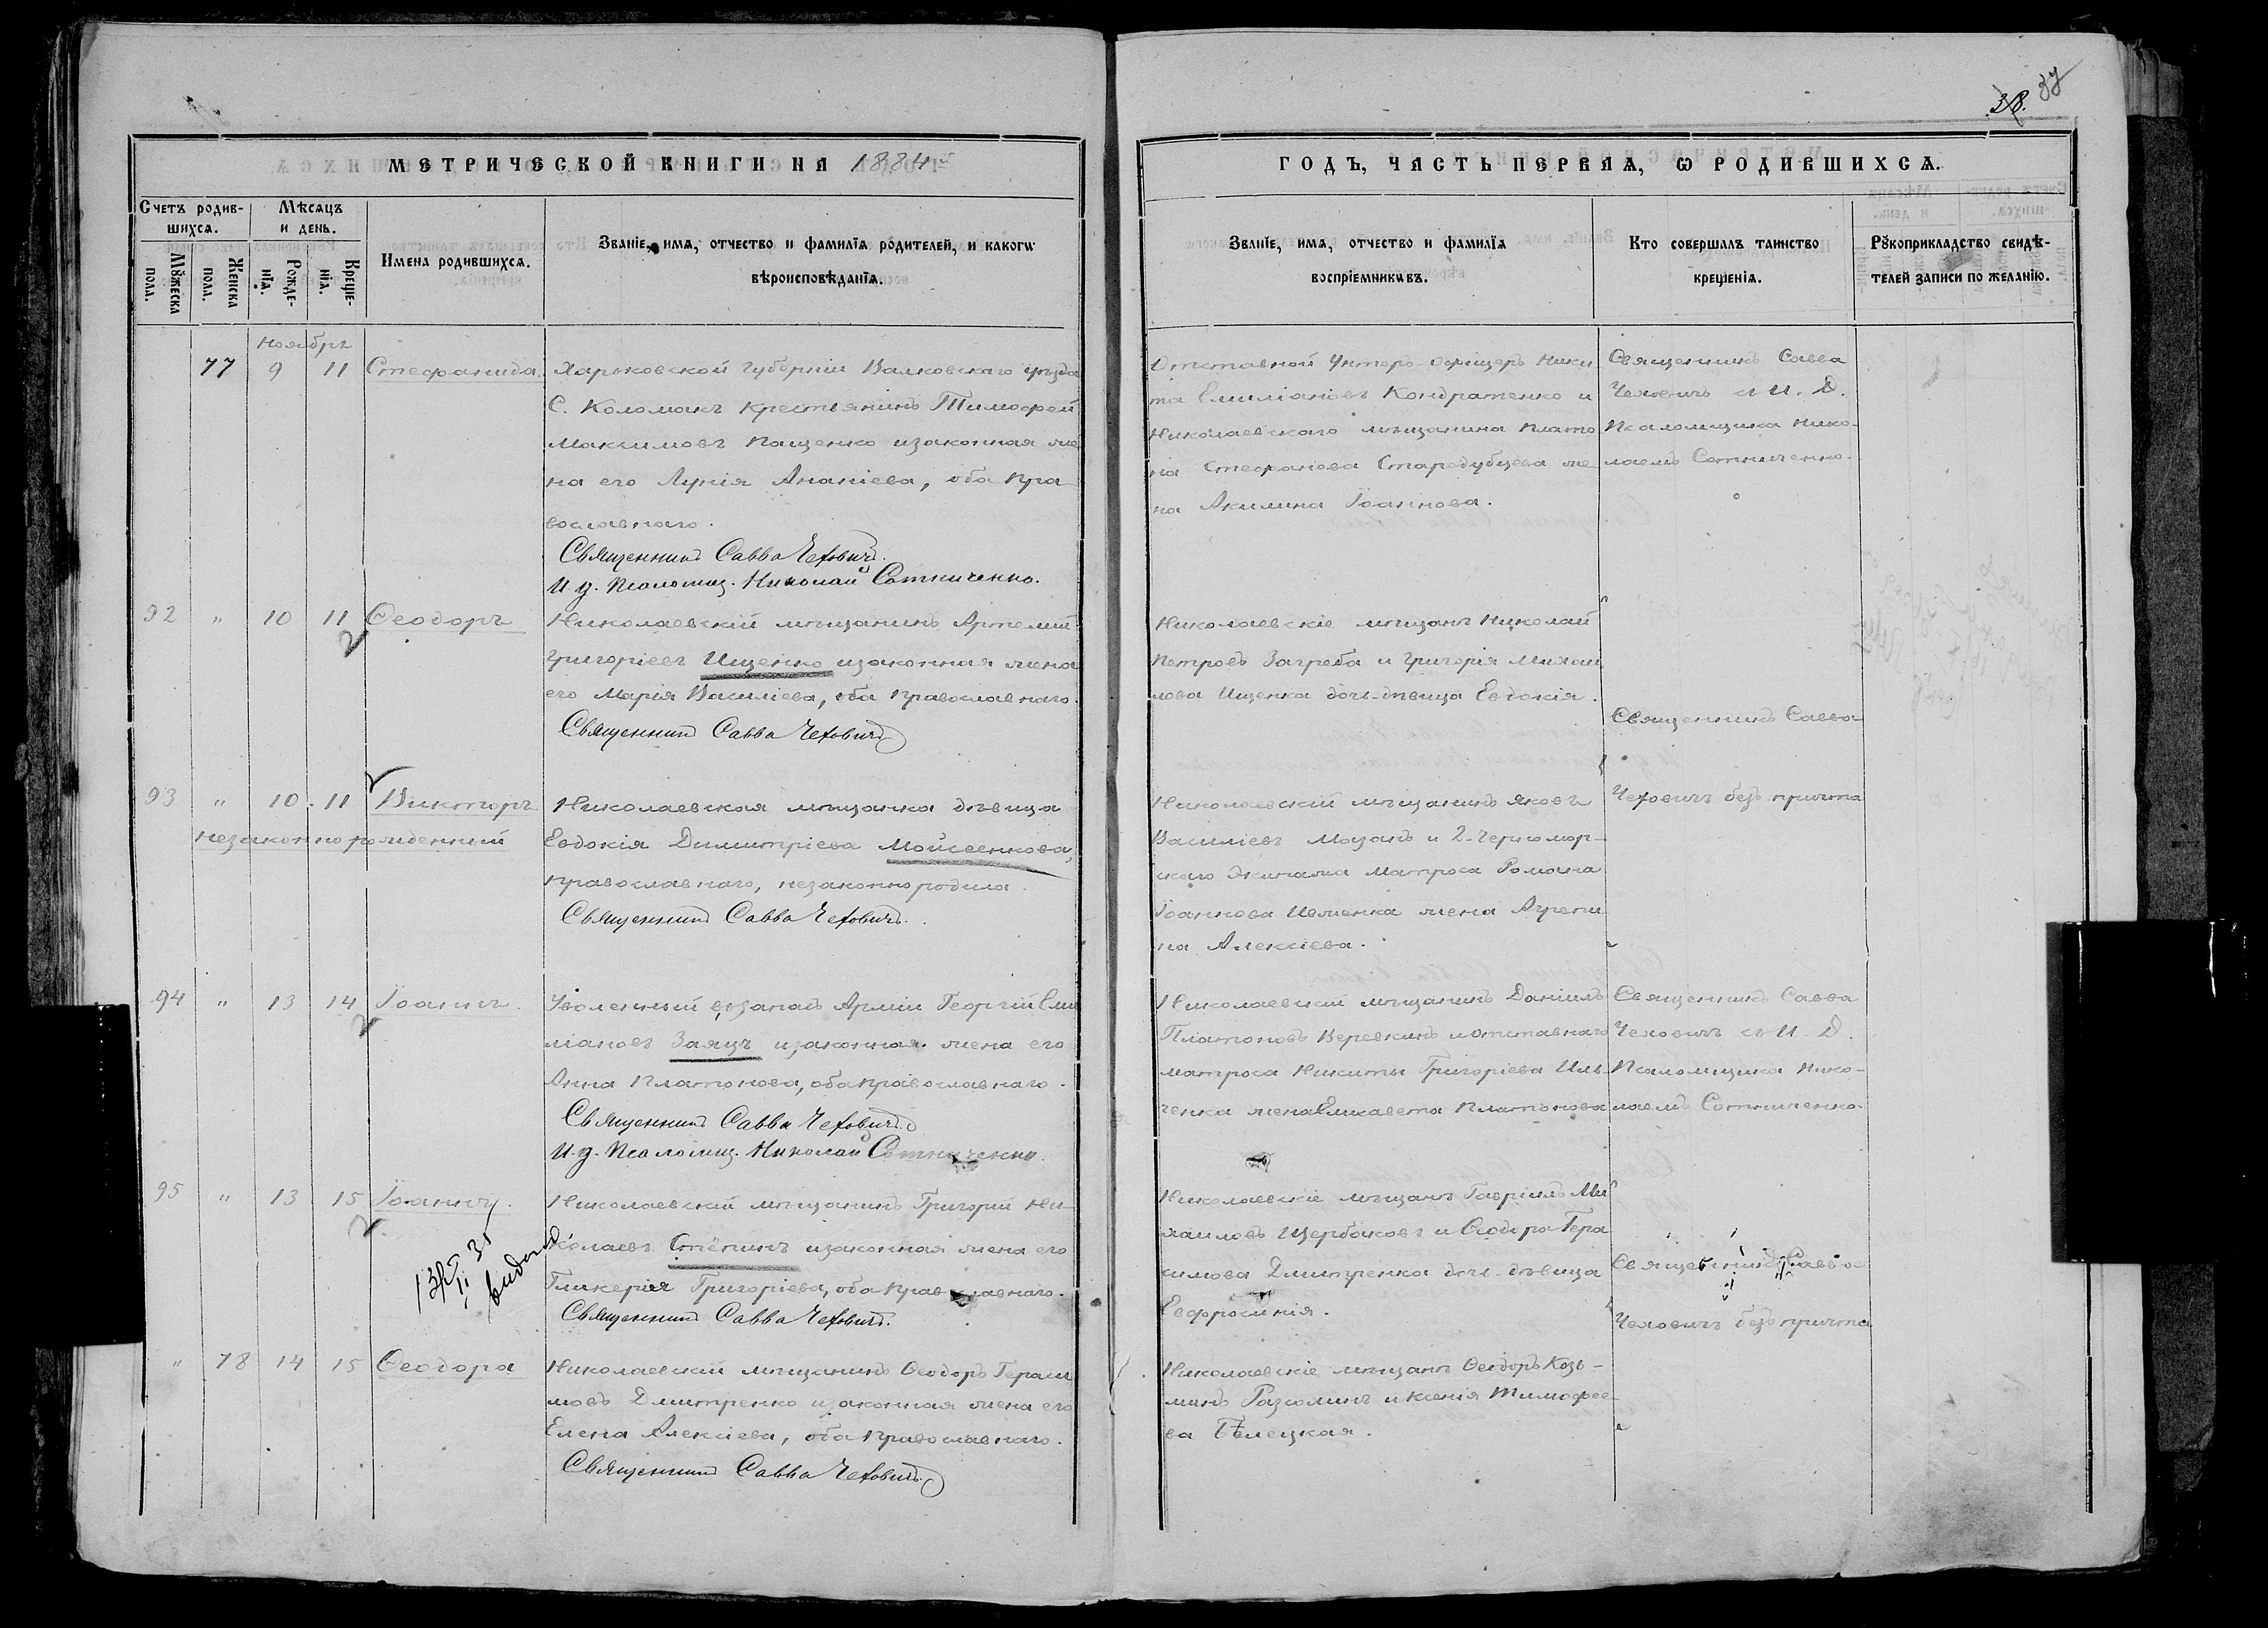 38. 37
МЕТРИЧЕСКОЙ КНИГИ НА 1884й
ГОДЪ, ЧАСТЬ ПЕРВАЯ, Ѡ РОДИВШИХСѦ.
Счетъ родив-
шихсѧ.
Мꙋжеска
пола.
Женска
пола.
Мѣсяцъ
и день.
Рожде-
нїѧ.
Креще-
нїѧ.
Имена родившихсѧ.
Званїе, имѧ, отчество и фамилїѧ родителей, и какогѡ
вѣроисповѣданїѧ.
Званїе, имѧ, отчество и фамилїѧ
воспрїемникѡвъ.
Кто совершалъ таинство
крещенїѧ.
Рꙋкоприкладство свидѣ-
телей записи по желанїю.
Ноябрь
77 9 11 Стефанида.
Харьковской губерніи Валковскаго уѣзда
С. Коломакъ крестьянинъ Тимофей
Максимовъ Пащенко изаконная же
на его Лукія Ананіева, оба пра
вославнаго.
Священникъ Савва Чеховичъ.
И. д. Псаломщ. Николай Сотниченко.
Отставной Унтеръ-Офицеръ Ники
та Емиліановъ Кондратенко и
Николаевскаго мѣщанина Плато
на Стефанова Стародубцева же
на Акилина Іоаннова.
Священникъ Савва
Чеховичъ съ И. Д.
Псаломщика Нико-
лаемъ Сотниченко.
92 " 10 11 Ѳеодоръ
Николаевскій мѣщанинъ Артемій
Григоріевъ Ищенко изаконная жена
его Марія Василіева, оба православнаго.
Священникъ Савва Чеховичъ
Николаевскіе мѣщане Николай
Петровъ Загреба и Григорія Михаи
лова Ищенка дочь-дѣвица Евдокія.
Священникъ Савва
93 " 10 11 Викторъ
незаконнорожденный
Николаевская мѣщанка дѣвица
Евдокія Димитріева Мойсеенкова,
православнаго, незаконно родила.
Священникъ Савва Чеховичъ.
Николаевскій мѣщанинъ Яковъ
Василіевъ Мазанъ и 2-Черномор-
скаго Экипажа матроса Романа
Іоаннова Ивженка жена Агрепи
на Алексіева.
Чеховичъ безъ причта
94 " 13 14 Іоаннъ.
Уволенный взапасъ Арміи Георгій Еми
ліановъ Заяцъ изаконная жена его
Анна Платонова, оба православнаго.
Священникъ Савва Чеховичъ.
И. д. Псаломщ. Николай Сотниченко.
Николаевскій мѣщанинъ Даніилъ
Платоновъ Веревкинъ иотставнаго
матроса Никиты Григоріева Иль-
ченка жена Елисавета Платонова
Священникъ Савва
Чеховичъ съ И. Д.
Псаломщика Нико-
лаемъ Сотниченко.
95 " 13 15 Іоаннъ.
Николаевскій мѣщанинъ Григорій Ни-
колаевъ Стёпинъ изаконная жена его
Гликерія Григоріева, оба православнаго.
Священникъ Савва Чеховичъ.
Николаевскіе мѣщане Гавріилъ Ми
хаиловъ Щербаковъ и Ѳеодора Гера
симова Дмитренка дочь-дѣвица
Евфросинія.
Священникъ Савва
Чеховичъ безъ причта
" 78 14 15 Ѳеодора
Николаевскій мѣщанинъ Ѳеодоръ Гераси
мовъ Дмитренко изаконная жена его
Елена Алексіева, оба православнаго.
Священникъ Савва Чеховичъ.
Николаевскіе мѣщане Ѳеодоръ Козь-
минъ Разсолинъ и Ксенія Тимофее-
ва Бѣлецкая.